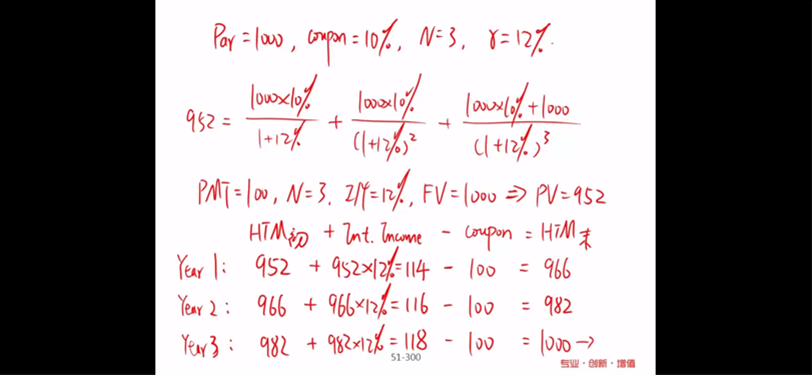 Par=1000, coupon=10%, N=3, r=12%.
952 = 1000×10% / 1+12% + 1000×10% / (1+12%)² + 1000×10%+1000 / (1+12%)³
PMT=100, N=3, I/Y=12%, FV=1000 ⇒ PV=952
HTM初 + Int. Income - coupon = HTM末
Year 1: 952 + 952×12%=114 - 100 = 966
Year 2: 966 + 966×12%=116 - 100 = 982
Year 3: 982 + 982×12%=118 - 100 = 1000 →
51-300
专业·创新·增值